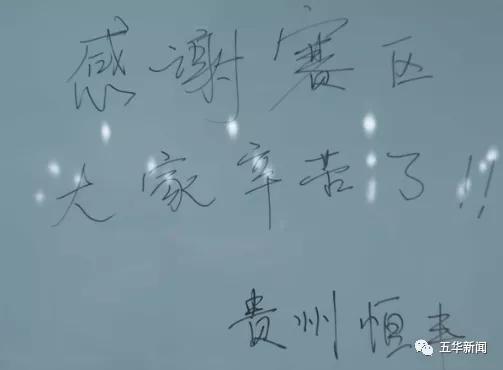 感谢赛区
大家辛苦了!!
贵州恒丰
五华新闻